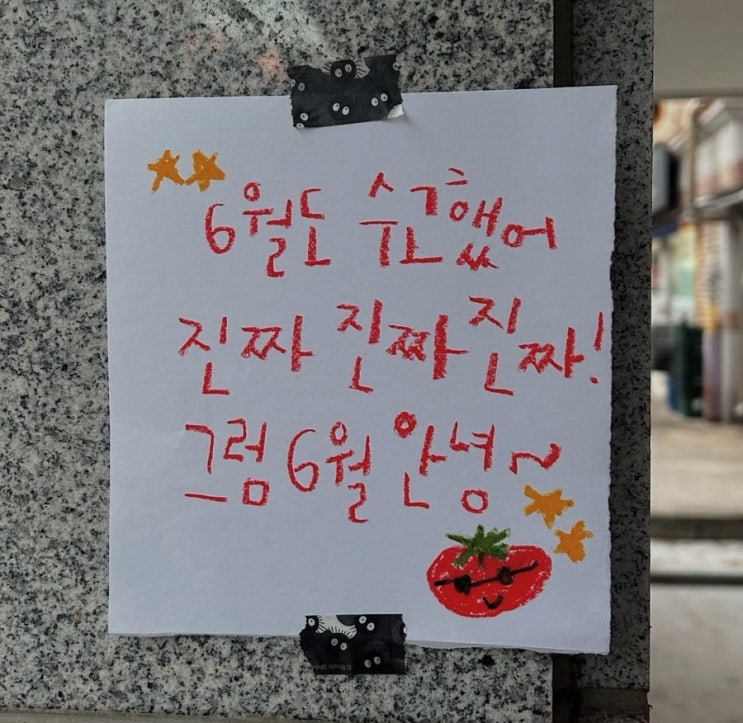 6월도 수고했어
진짜 진짜 진짜!
그럼 6월 안녕~